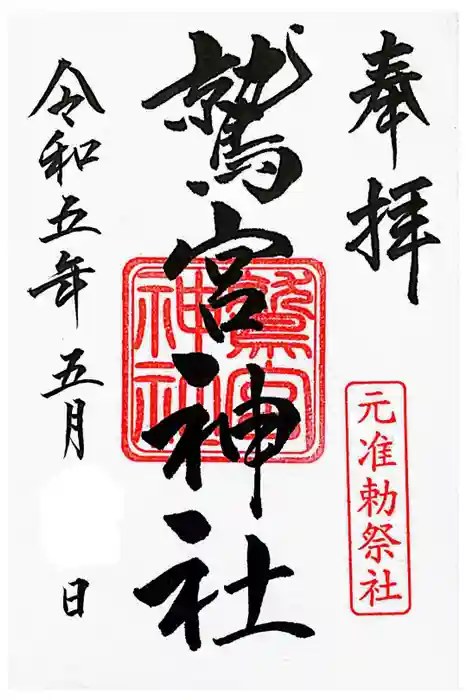 奉拝
元准勅祭社
鷲宮神社
鷲宮
神社
令和五年五月
日